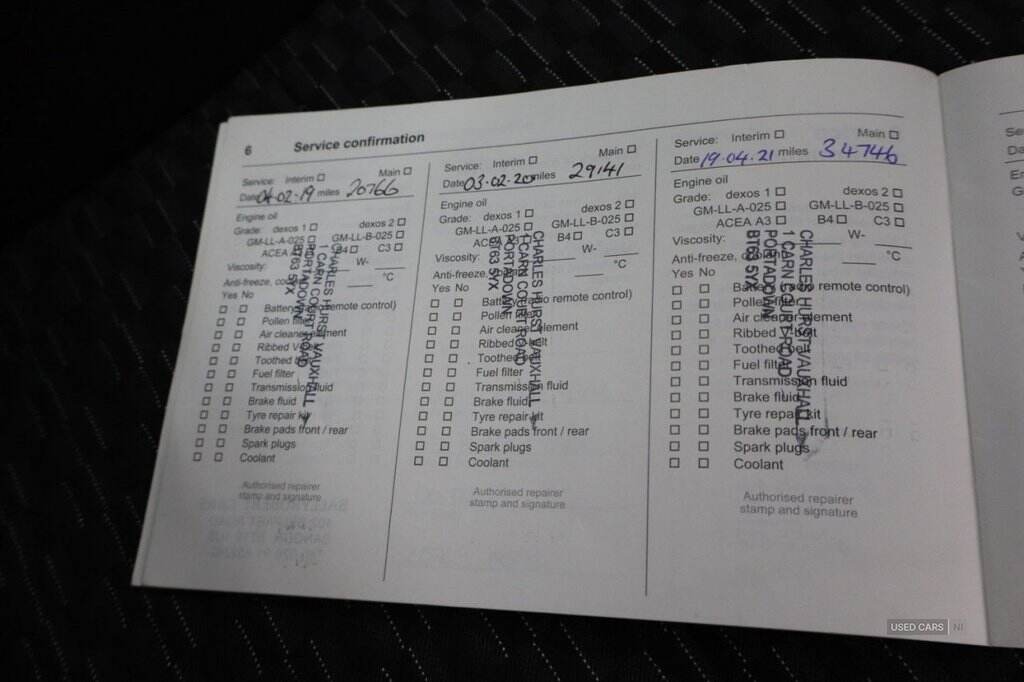 6 Service confirmation
Service: Interim ☐ Main ☐
Date 04-02-19 miles 20766
Engine oil
Grade: dexos 1 ☐ dexos 2 ☐
GM-LL-A-025 ☐ GM-LL-B-025 ☐
ACEA A3 B4 ☐ C3 ☐
Viscosity: W-
Anti-freeze, °C
Yes No
☐ ☐ Battery (radio remote control)
☐ ☐ Pollen filter
☐ ☐ Air cleaner element
☐ ☐ Ribbed V-belt
☐ ☐ Toothed belt
☐ ☐ Fuel filter
☐ ☐ Transmission fluid
☐ ☐ Brake fluid
☐ ☐ Tyre repair kit
☐ ☐ Brake pads front / rear
☐ ☐ Spark plugs
☐ ☐ Coolant
CHARLES HURST VAUXHALL
1 CARN COURT ROAD
PORTADOWN
BT63 5YX
Authorised repairer
stamp and signature
Service: Interim ☐ Main ☐
Date 03-02-20 miles 29141
Engine oil
Grade: dexos 1 ☐ dexos 2 ☐
GM-LL-A-025 ☐ GM-LL-B-025 ☐
ACEA B4 ☐ C3 ☐
Viscosity: W-
Anti-freeze, °C
Yes No
☐ ☐ Battery (radio remote control)
☐ ☐ Pollen filter
☐ ☐ Air cleaner element
☐ ☐ Ribbed V-belt
☐ ☐ Toothed belt
☐ ☐ Fuel filter
☐ ☐ Transmission fluid
☐ ☐ Brake fluid
☐ ☐ Tyre repair kit
☐ ☐ Brake pads front / rear
☐ ☐ Spark plugs
☐ ☐ Coolant
CHARLES HURST VAUXHALL
1 CARN COURT ROAD
PORTADOWN
BT63 5YX
Authorised repairer
stamp and signature
Service: Interim ☐ Main ☐
Date 19.04.21 miles 34746
Engine oil
Grade: dexos 1 ☐ dexos 2 ☐
GM-LL-A-025 ☐ GM-LL-B-025 ☐
ACEA A3 ☐ B4 ☐ C3 ☐
Viscosity: W-
Anti-freeze, °C
Yes No
☐ ☐ Battery (radio remote control)
☐ ☐ Pollen filter
☐ ☐ Air cleaner element
☐ ☐ Ribbed V-belt
☐ ☐ Toothed belt
☐ ☐ Fuel filter
☐ ☐ Transmission fluid
☐ ☐ Brake fluid
☐ ☐ Tyre repair kit
☐ ☐ Brake pads front / rear
☐ ☐ Spark plugs
☐ ☐ Coolant
CHARLES HURST VAUXHALL
1 CARN COURT ROAD
PORTADOWN
BT63 5YX
Authorised repairer
stamp and signature
USED CARS NI